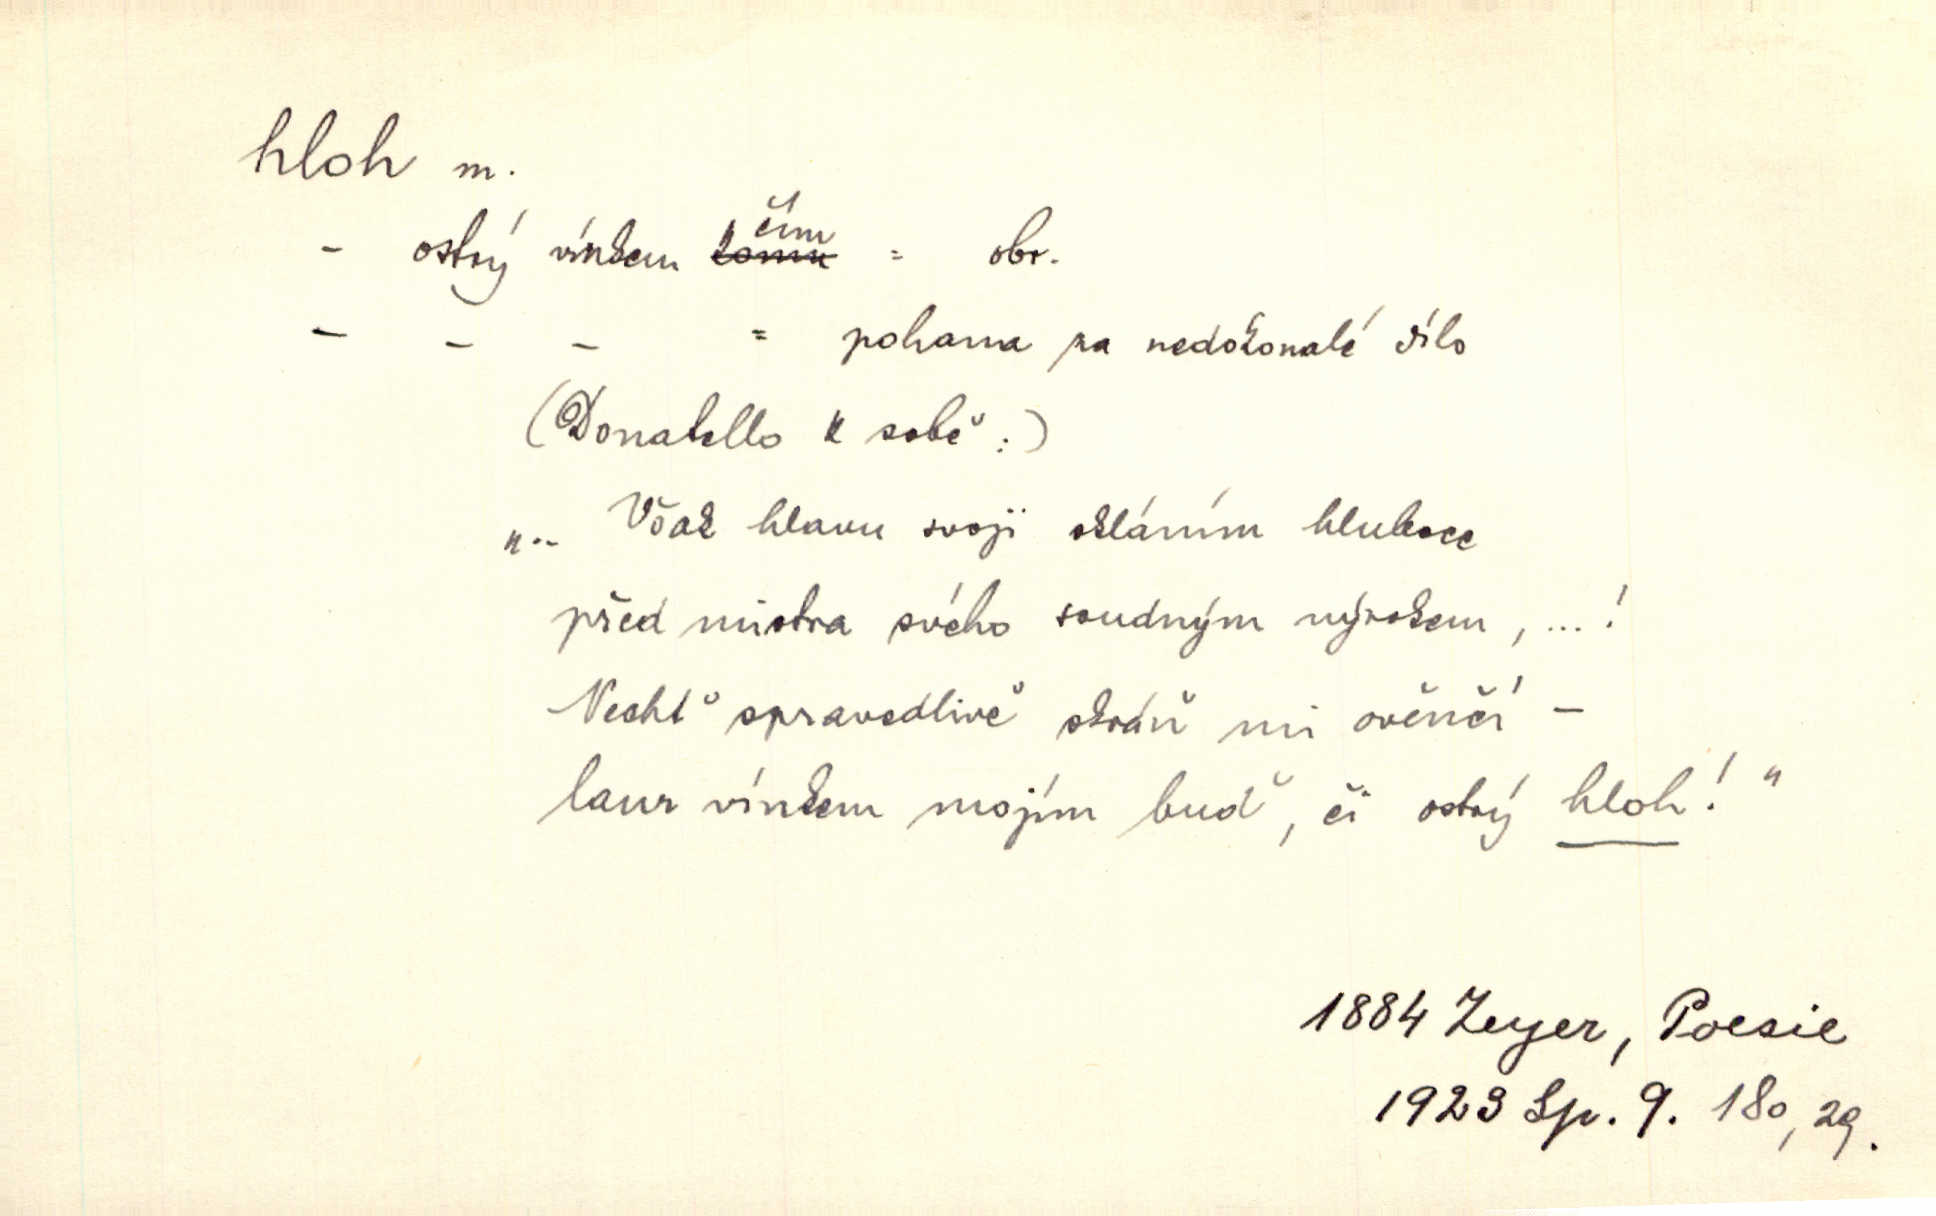 hloh m.
- ostrý vínkem komu čím = obr.
- - - = pohana za nedokonalé dílo
(Donatello k sobě:)
„.. Však hlavu svoji skláním hluboce
před mistra svého soudným výrokem, ...!
Nechť spravedlivě skráň mi ověnčí –
laur vínkem mojím buď, či ostrý hloh!“
1884 Zeyer, Poesie
1923 Sp. 9. 180, 29.